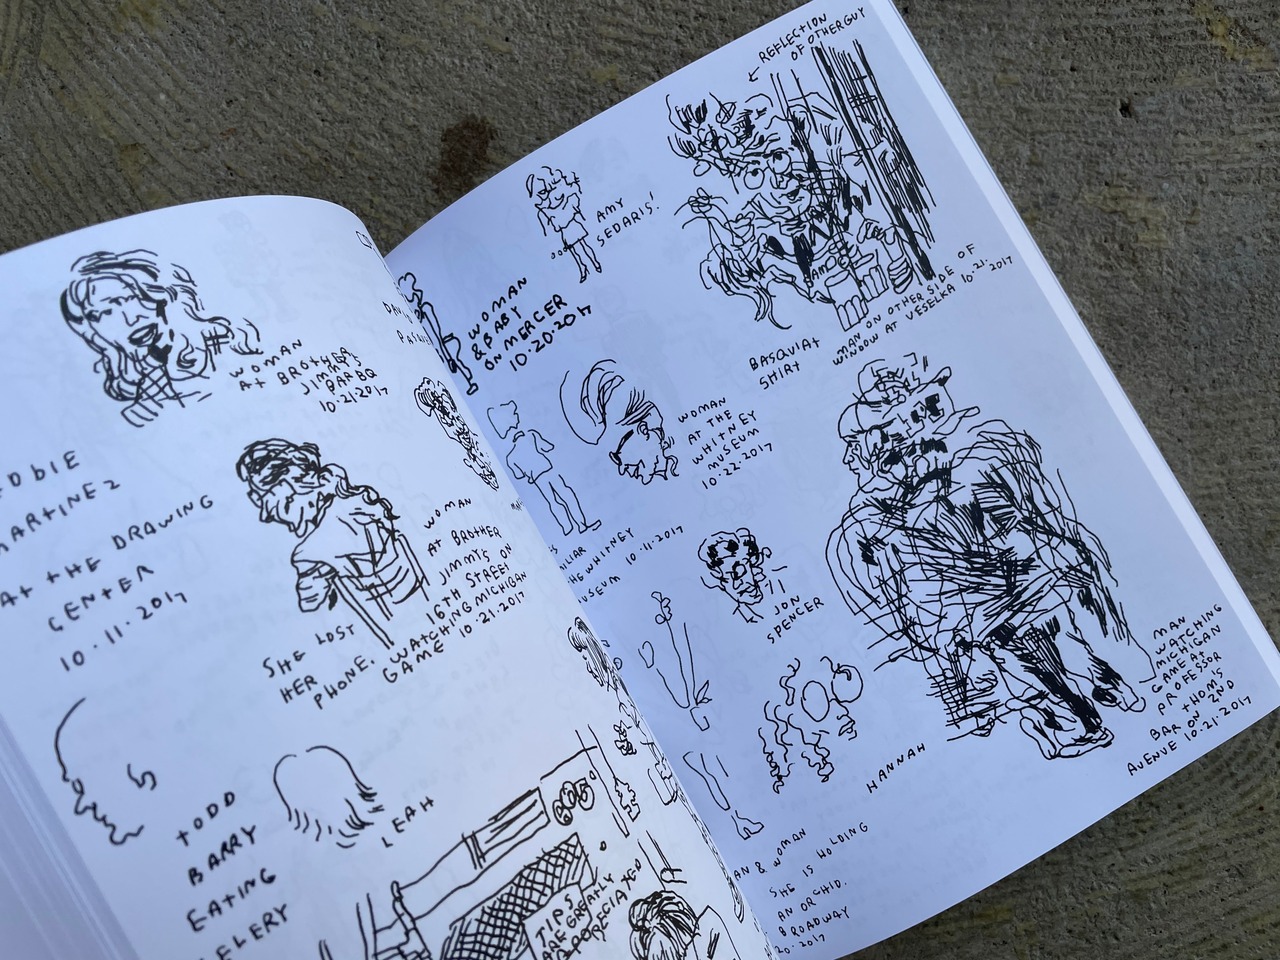 WOMAN
AT BROTHER
JIMMY'S
BAR BQ
10.21.2017
AT THE DRAWING
CENTER
10.11.2017
SHE LOST
HER
PHONE.
WOMAN
AT BROTHER
JIMMY'S
16TH STREET ON
WATCHING MICHIGAN
GAME 10.21.2017
TODD
BARRY
EATING
LEAH
TIPS
ARE GREATLY
APPRECIATED
← REFLECTION
OF OTHER GUY
AMY
SEDARIS!
WOMAN
& BABY
ON MERCER
10.20.2017
BASQUIAT
SHIRT
MAN ON OTHER SIDE OF
WINDOW AT VESELKA 10.21.
2017
WOMAN
AT THE
WHITNEY
MUSEUM
10.22.2017
WHITNEY
10.11.2017
JON
SPENCER
HANNAH
MAN
WATCHING
MICHIGAN
GAME AT
PROFESSOR
BAR THOM'S
ON 2ND
AVENUE 10.21.2017
& WOMAN
SHE IS HOLDING
AN ORCHID.
BROADWAY